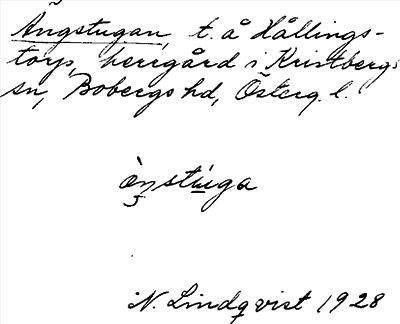 Ängstugan, t. å Hållings-
torp, herrgård i Kristbergs
sn, Bobergs hd, Österg. l.
ὰŋstúga
N. Lindqvist 1928